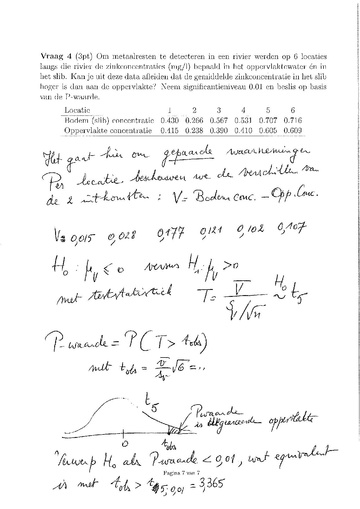 Vraag 4 (3pt) Om metaalresten te detecteren in een rivier werden op 6 locaties
langs die rivier de zinkconcentraties (mg/l) bepaald in het oppervlaktewater én in
het slib. Kan je uit deze data afleiden dat de gemiddelde zinkconcentratie in het slib
hoger is dan aan de oppervlakte? Neem significantieniveau 0.01 en beslis op basis
van de P-waarde.
Locatie 1 2 3 4 5 6
Bodem (slib) concentratie 0.430 0.266 0.567 0.531 0.707 0.716
Oppervlakte concentratie 0.415 0.238 0.390 0.410 0.605 0.609
Het gaat hier om gepaarde waarnemingen
Per locatie beschouwen we de verschillen van
de 2 uitkomsten : V = Bodem conc. – Opp. Conc.
V = 0,015 0,028 0,177 0,121 0,102 0,107
H₀ : μᵥ ≤ 0 versus H₁ : μᵥ > 0
met teststatistiek T = V̄ / (Sᵥ/√n) ~ᴴ⁰ t₅
P-waarde = P(T > t_obs)
met t_obs = v̄/sᵥ √6 = ...
t₅
P waarde
is oppervlakte
0 t_obs
Verwerp H₀ als P-waarde < 0,01, wat equivalent
Pagina 7 van 7
is met t_obs > t₅,₀,₀₁ = 3,365